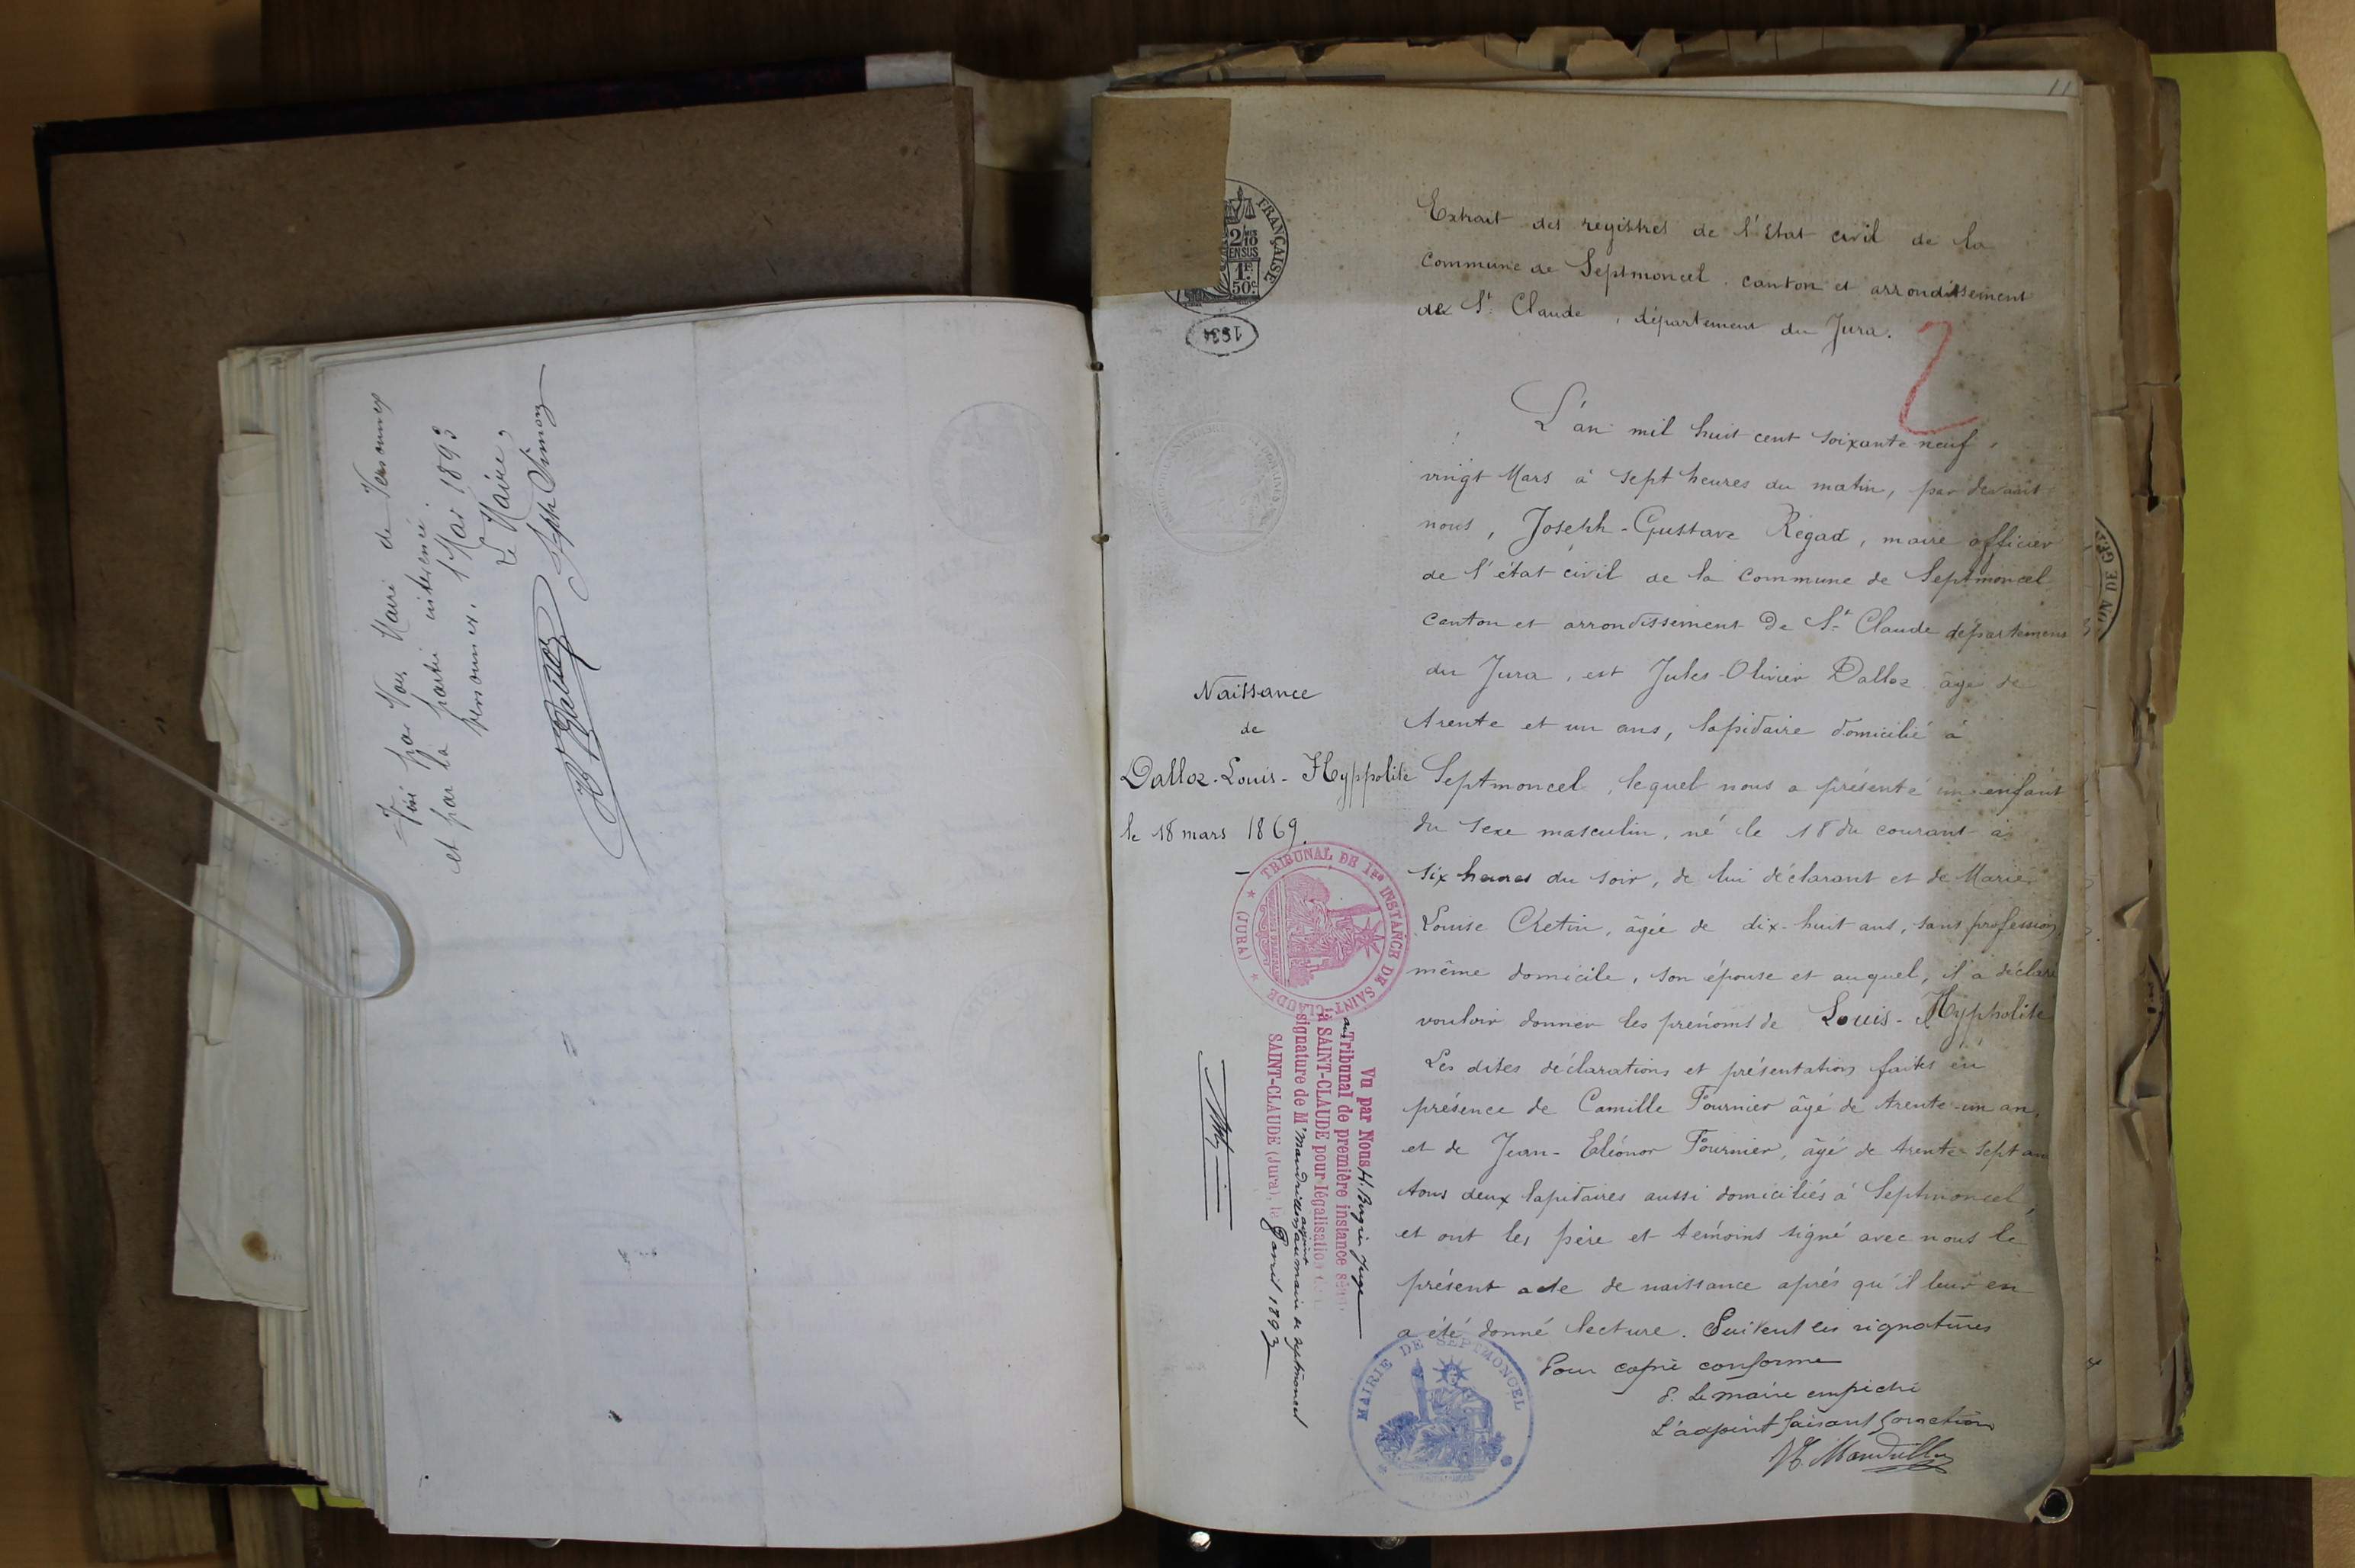 par Nous Maire de Versonnex
et par la partie intéressée.
Versonnex, 1 Mai 1893
Le Maire
11
FRANÇAISE
2/10
EN SUS
1F
50c
1634
Extrait des registres de l'état civil de la
commune de Septmoncel. canton et arrondissement
de St. Claude, département du Jura.
2
L'an mil huit cent soixante neuf,
vingt Mars à sept heures du matin, par devant
nous, Joseph-Gustave Régad, maire officier
de l'état civil de la Commune de Septmoncel
canton et arrondissement de St Claude département
du Jura, est Jules-Olivier Dalloz âgé de
trente et un ans, lapidaire domicilié à
Septmoncel, lequel nous a présenté un enfant
du sexe masculin, né le 18 du courant à
six heures du soir, de lui déclarant et de Marie
Louise Chetin, âgée de dix-huit ans, sans profession,
même domicile, son épouse et auquel, il a déclaré
vouloir donner les prénoms de Louis-Hypholite
Les dites déclarations et présentation faites en
présence de Camille Fournier âgé de trente-un an,
et de Jean-Eléonor Fournier, âgé de trente-sept an
tous deux lapidaires aussi domiciliés à Septmoncel,
et ont les père et témoins signé avec nous le
présent acte de naissance après qu'il leur en
a été donné lecture. Suivent les signatures
Pour copie conforme
P. Le maire empêché
L'adjoint faisant fonction
Naissance
de
Dalloz-Louis-Hyppolite
le 18 mars 1869.
TRIBUNAL DE 1re INSTANCE DE SAINT-CLAUDE
(JURA)
Vu par Nous Juge
au Tribunal de première instance séant
à SAINT-CLAUDE pour légalisation
signature de Mr Mandrillon adjoint au maire de Septmoncel
SAINT-CLAUDE (Jura), le 8 avril 1893
MAIRIE DE SEPTMONCEL
ON DE GEX